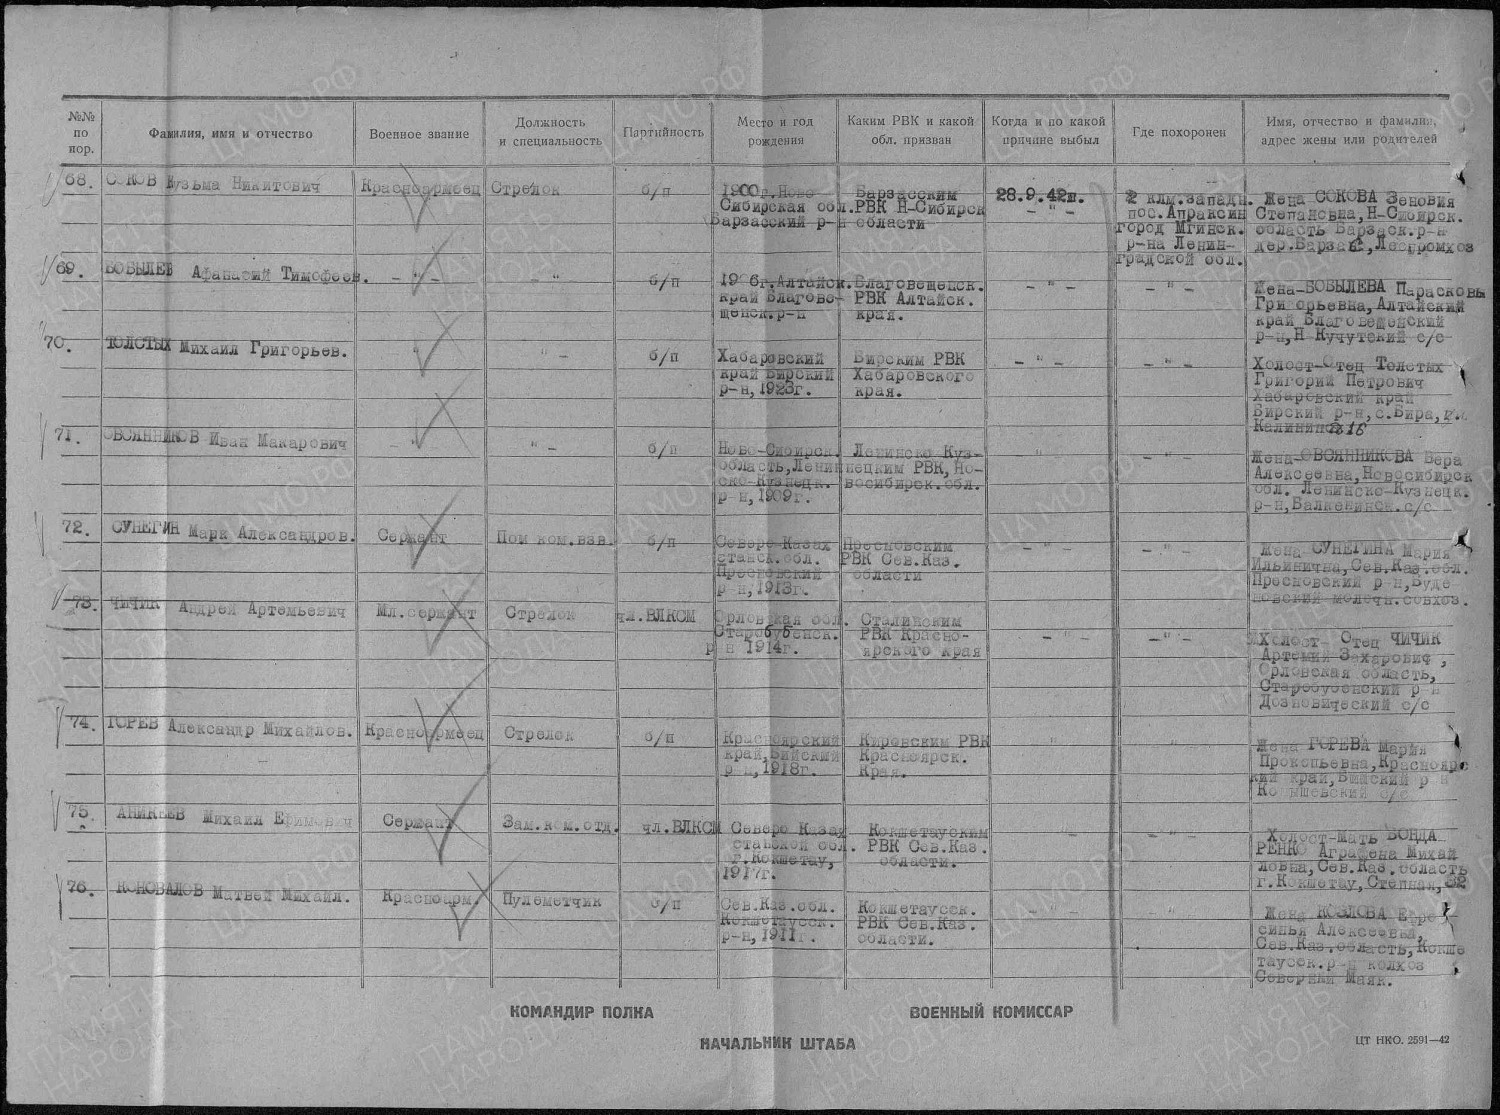 №№ по пор.
Фамилия, имя и отчество
Военное звание
Должность и специальность
Партийность
Место и год рождения
Каким РВК и какой обл. призван
Когда и по какой причине выбыл
Где похоронен
Имя, отчество и фамилия, адрес жены или родителей
68. СОКОВ Кузьма Никитович
Красноармеец
Стрелок
б/п
1900г.Ново
Сибирская обл.
Барзасский р-н
Барзасским
РВК Н-Сибирск
области
28.9.42г.
— " —
2 клм.западн.
пос.Апраксин
город Мгинск.
р-на Ленин-
градской обл.
Жена СОКОВА Зеновия
Степановна,Н-Сибирск.
область Барзасск.р-н
69. БОБЫЛЕВ Афанасий Тимофеев.
— " —
— " —
б/п
Алтайск.
край Благове-
щенск.р-н
Благовещенск.
РВК Алтайск.
края.
— " —
— " —
Жена-БОБЫЛЕВА Парасковь
Григорьевна,Алтайский
край Благовещенский
р-н,Н Кучутский с/с
70. ТОЛСТЫХ Михаил Григорьев.
"
" —
б/п
Хабаровский
край Бирский
р-н,1923г.
Бирским РВК
Хабаровского
края.
— " —
— " —
Холост-Отец Толстых
Григорий Петрович
Хабаровский край
Бирский р-н,с.Бира,
71. ОВСЯННИКОВ Иван Макарович
— " —
" —
б/п
Ново-Сибирск.
область,Ленин
ско-Кузнецк.
р-н,1909г.
Ленинско Куз-
нецким РВК,Но-
восибирск.обл.
— " —
— " —
Жена-ОВСЯННИКОВА Вера
Алексеевна,Новосибирск
обл. Ленинско-Кузнецк.
72. СУНЕГИН Марк Александров.
Сержант
Пом ком.взв.
б/п
Северо-Казах
станск.обл.
Пресновский
р-н,1913г.
Пресновским
РВК Сев.Каз.
области
— " —
— " —
Жена СУНЕГИНА Мария
Ильинична,Сев.Каз.обл.
Пресновский р-н,Буде
новский молочн.совхоз.
73. ЧИЧИК Андрей Артемьевич
Мл.сержант
Стрелок
чл.ВЛКСМ
Орловская обл.
Старобубенск.
р-н 1914г.
Сталинским
РВК Красно-
ярского края
— " —
— " —
Холост- Отец ЧИЧИК
Артемий Захарович,
Орловская область,
Старобубенский р-н
Дозновический с/с
74. ГОРЕВ Александр Михайлов.
Красноармеец
Стрелок
б/п
Красноярский
край,Бийский
р-н,1918г.
Кировским РВК
Красноярск.
Края.
"
"
Жена ГОРЕВА Мария
Прокопьевна,Краснояр
75. АНИКЕЕВ Михаил Ефимович
Сержант
Зам.ком.отд.
чл.ВЛКСМ
Северо Казах
станской обл.
г.Кокшетау,
1917г.
Кокшетауским
РВК Сев.Каз.
области.
"
— " —
Холост-Мать БОНДА
РЕНКО Аграфена Михай
ловна,Сев.Каз.область
г.Кокшетау,Степная,
76. КОНОВАЛОВ Матвей Михаил.
Красноарм.
Пулеметчик
б/п
Сев.Каз.обл.
Кокшетаусск.
р-н,1911г.
Кокшетаусск.
РВК Сев.Каз.
области.
— " —
"
Жена КОЗЛОВА Ефро
синья Алексеевн,
Сев.Каз.область,Кокше
таусск.р-н колхоз
Северный Маяк.
КОМАНДИР ПОЛКА
ВОЕННЫЙ КОМИССАР
НАЧАЛЬНИК ШТАБА
ЦТ НКО. 2591—42
ПАМЯТЬ НАРОДА
ЦАМО.РФ